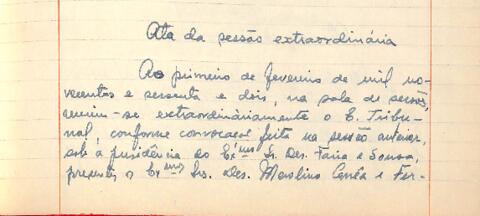 Ata da sessão extraordinária
Ao primeiro de fevereiro de mil no-
vecentos e sessenta e dois, na sala de sessões,
reuniu-se extraordinàriamente o E. Tribu-
nal, conforme convocação feita na sessão anterior,
sob a presidência do Exmo Sr. Des. Faria e Sousa,
presentes o Exmos Srs. Des. Merolino Corrêa e Fer-